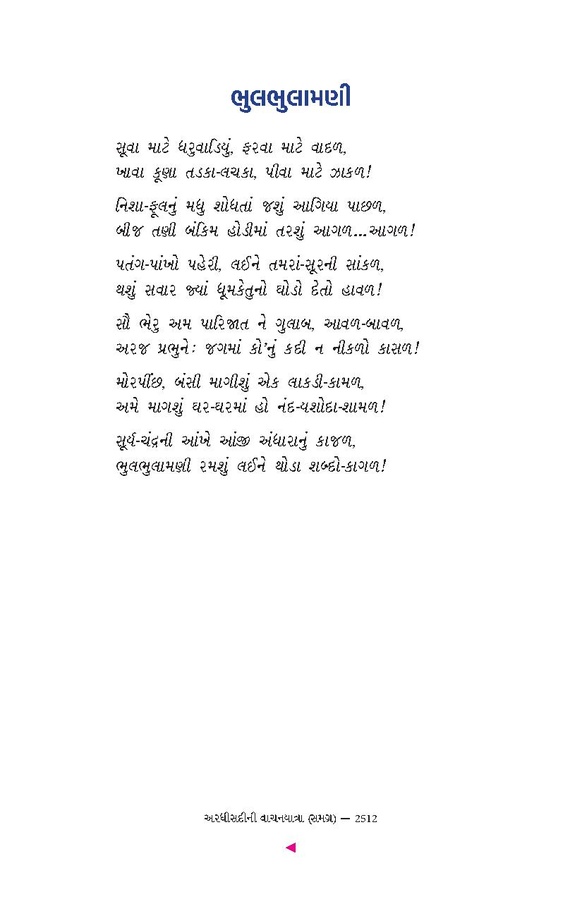 ભુલભુલામણી
સૂવા માટે ધરુવાડિયું, ફરવા માટે વાદળ,
ખાવા કૂણા તડકા-લચકા, પીવા માટે ઝાકળ!
નિશા-ફૂલનું મધુ શોધતાં જશું આગિયા પાછળ,
બીજ તણી બંકિમ હોડીમાં તરશું આગળ...આગળ!
પતંગ-પાંખો પહેરી, લઈને તમરાં-સૂરની સાંકળ,
થશું સવાર જ્યાં ધૂમકેતુનો ઘોડો દેતો હાવળ!
સૌ ભેરુ અમ પારિજાત ને ગુલાબ, આવળ-બાવળ,
અરજ પ્રભુને: જગમાં કો'નું કદી ન નીકળો કાસળ!
મોરપીંછ, બંસી માગીશું એક લાકડી-કામળ,
અમે માગશું ઘર-ઘરમાં હો નંદ-યશોદા-શામળ!
સૂર્ય-ચંદ્રની આંખે આંજી અંધારાનું કાજળ,
ભુલભુલામણી રમશું લઈને થોડા શબ્દો-કાગળ!
અરધીસદીની વાચનયાત્રા (સમગ્ર) — 2512